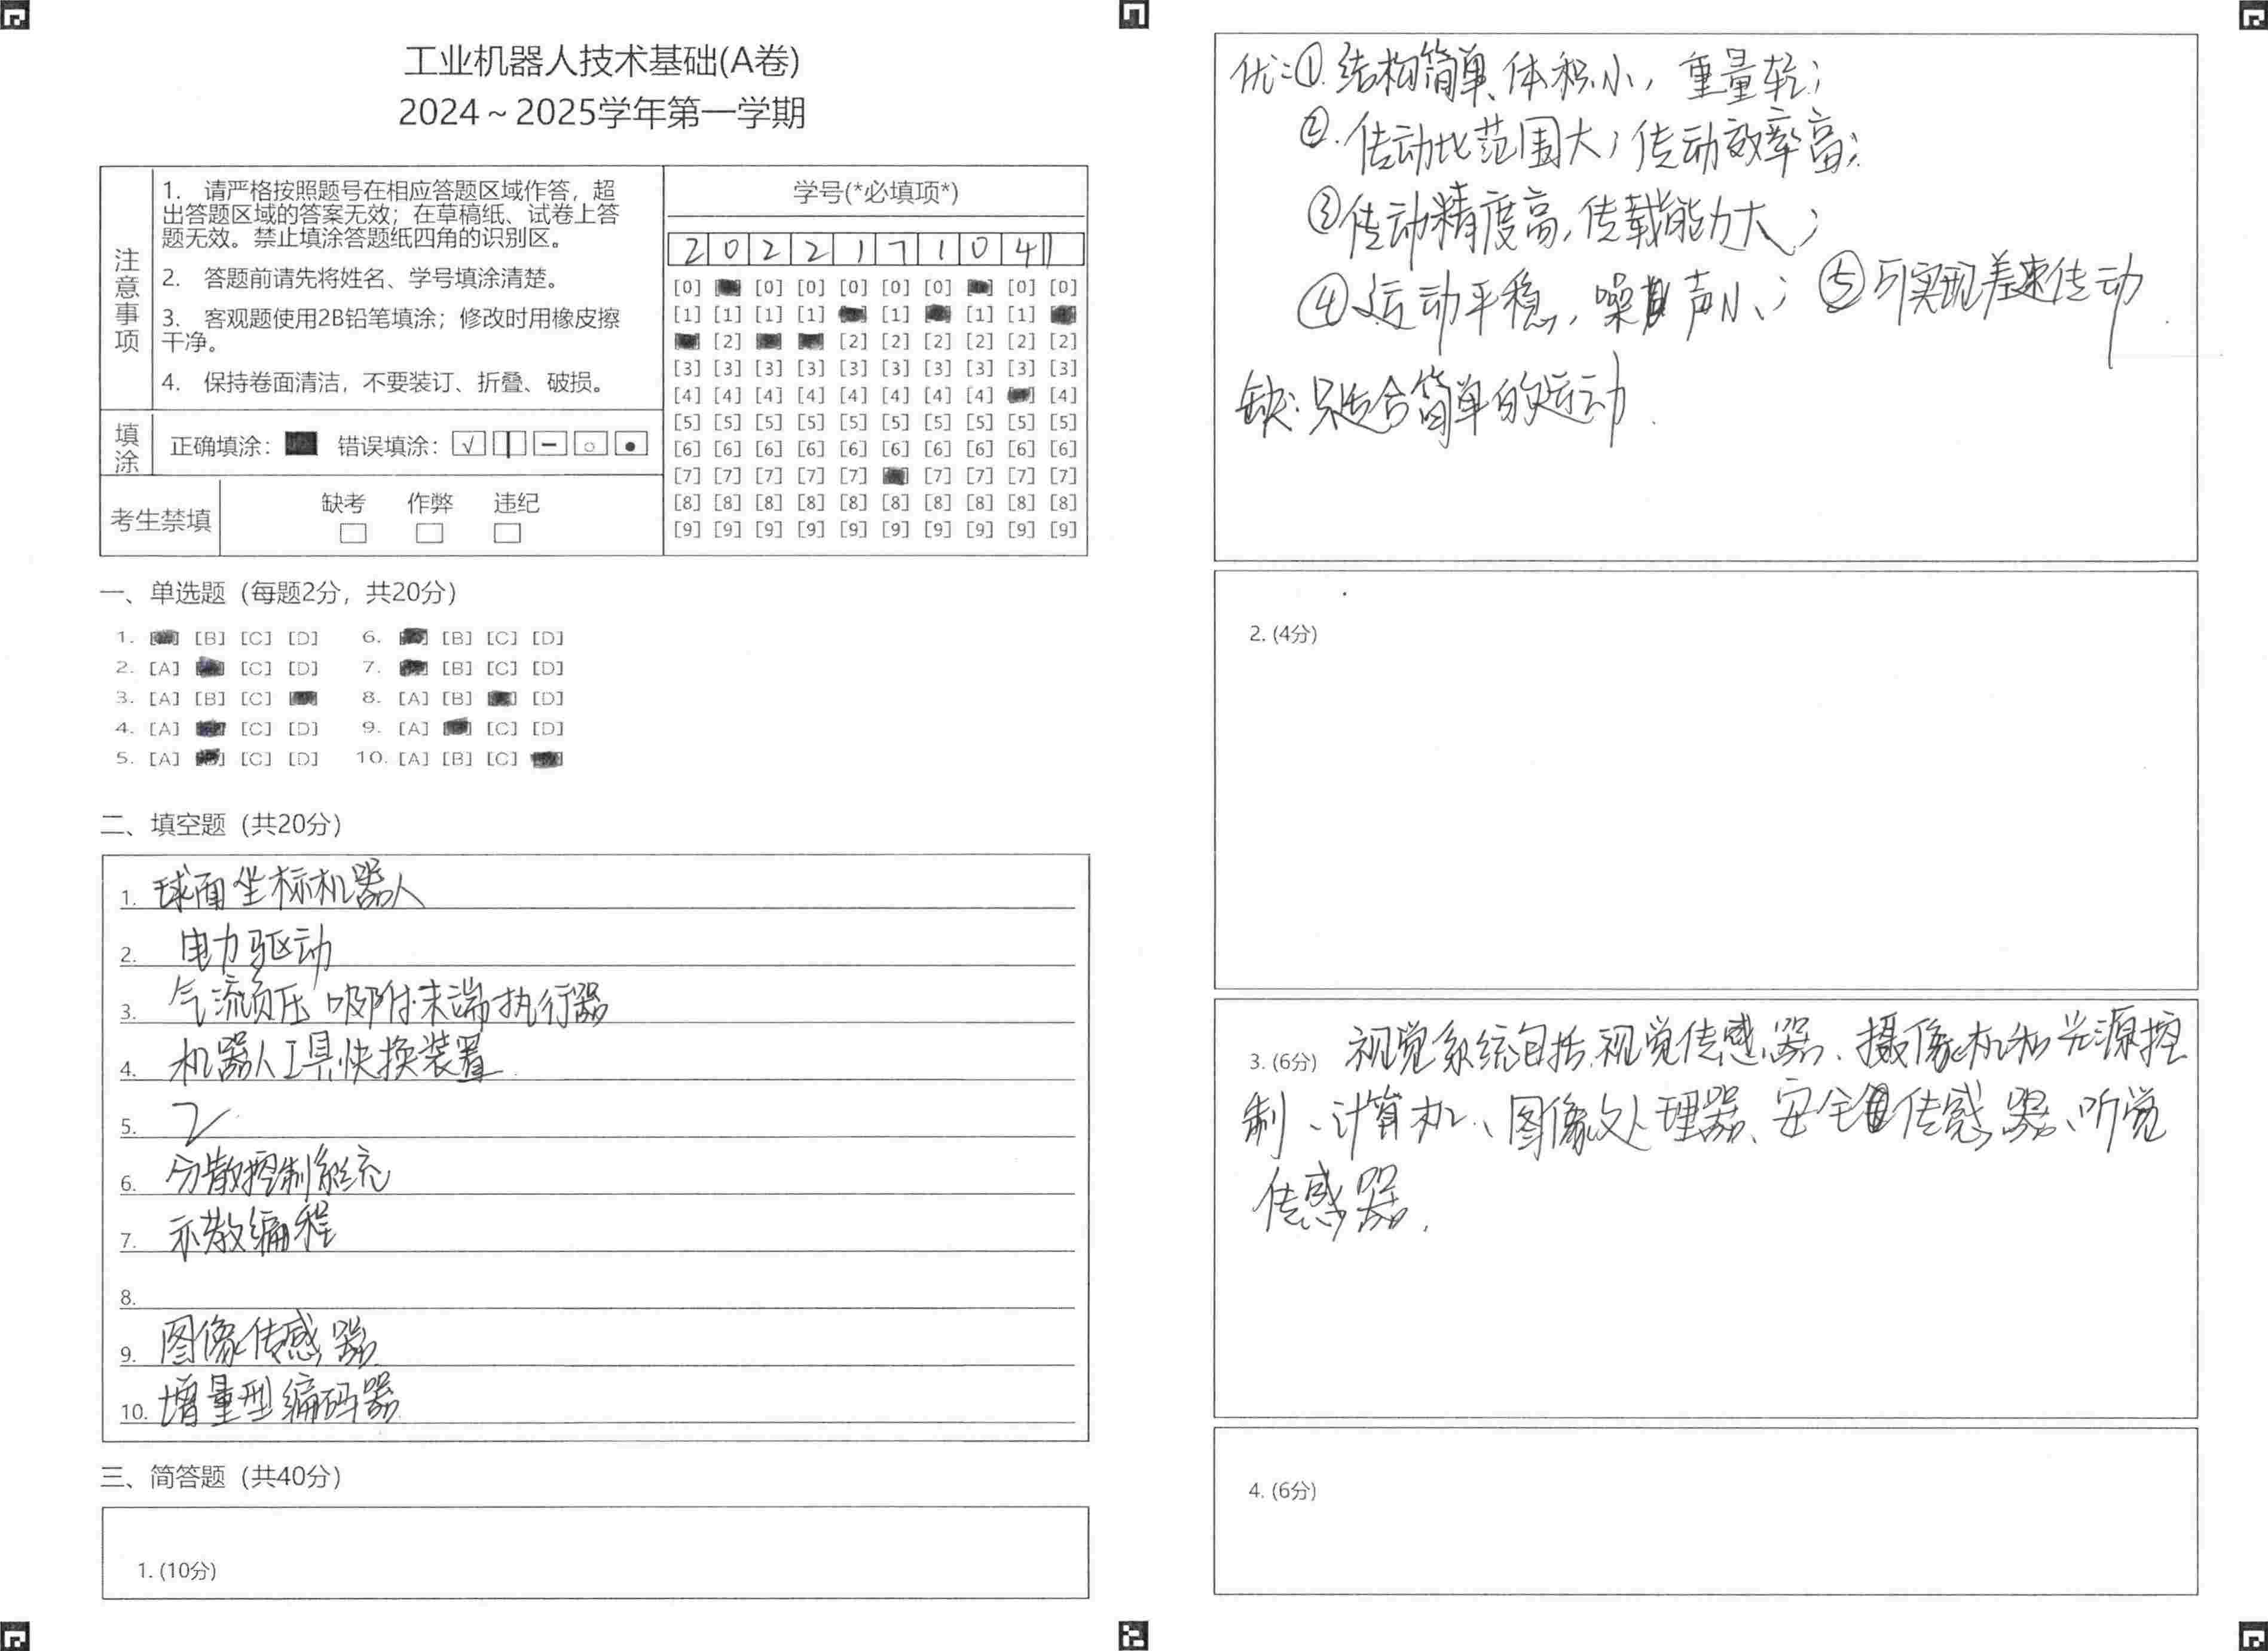 工业机器人技术基础(A卷)
2024～2025学年第一学期
注意事项
1. 请严格按照题号在相应答题区域作答，超
出答题区域的答案无效；在草稿纸、试卷上答
题无效。禁止填涂答题纸四角的识别区。
2. 答题前请先将姓名、学号填涂清楚。
3. 客观题使用2B铅笔填涂；修改时用橡皮擦
干净。
4. 保持卷面清洁，不要装订、折叠、破损。
填涂
正确填涂： 错误填涂： √ | – ○ ●
考生禁填
缺考 作弊 违纪
学号(*必填项*)
2 0 2 2 1 7 1 0 4 1
[0] [0] [0] [0] [0] [0] [0] [0]
[1] [1] [1] [1] [1] [1] [1]
[2] [2] [2] [2] [2] [2] [2]
[3] [3] [3] [3] [3] [3] [3] [3] [3] [3]
[4] [4] [4] [4] [4] [4] [4] [4] [4]
[5] [5] [5] [5] [5] [5] [5] [5] [5] [5]
[6] [6] [6] [6] [6] [6] [6] [6] [6] [6]
[7] [7] [7] [7] [7] [7] [7] [7] [7]
[8] [8] [8] [8] [8] [8] [8] [8] [8] [8]
[9] [9] [9] [9] [9] [9] [9] [9] [9] [9]
一、单选题（每题2分，共20分）
1. [B] [C] [D] 6. [B] [C] [D]
2. [A] [C] [D] 7. [B] [C] [D]
3. [A] [B] [C] 8. [A] [B] [D]
4. [A] [C] [D] 9. [A] [C] [D]
5. [A] [C] [D] 10. [A] [B] [C]
二、填空题（共20分）
1. 球面坐标机器人
2. 电力驱动
3. 气流负压吸附末端执行器
4. 机器人工具快换装置
5. 2
6. 分散控制系统
7. 示教编程
8.
9. 图像传感器
10. 增量型编码器
三、简答题（共40分）
1. (10分)
优：①. 结构简单、体积小，重量轻；
②. 传动比范围大；传动效率高；
③传动精度高，传载能力大；
④运动平稳，噪声小；⑤可实现差速传动
缺：只适合简单的运动.
2. (4分)
3. (6分) 视觉系统包括视觉传感器、摄像机和光源控
制、计算机、图像处理器、安全传感器、听觉
传感器.
4. (6分)